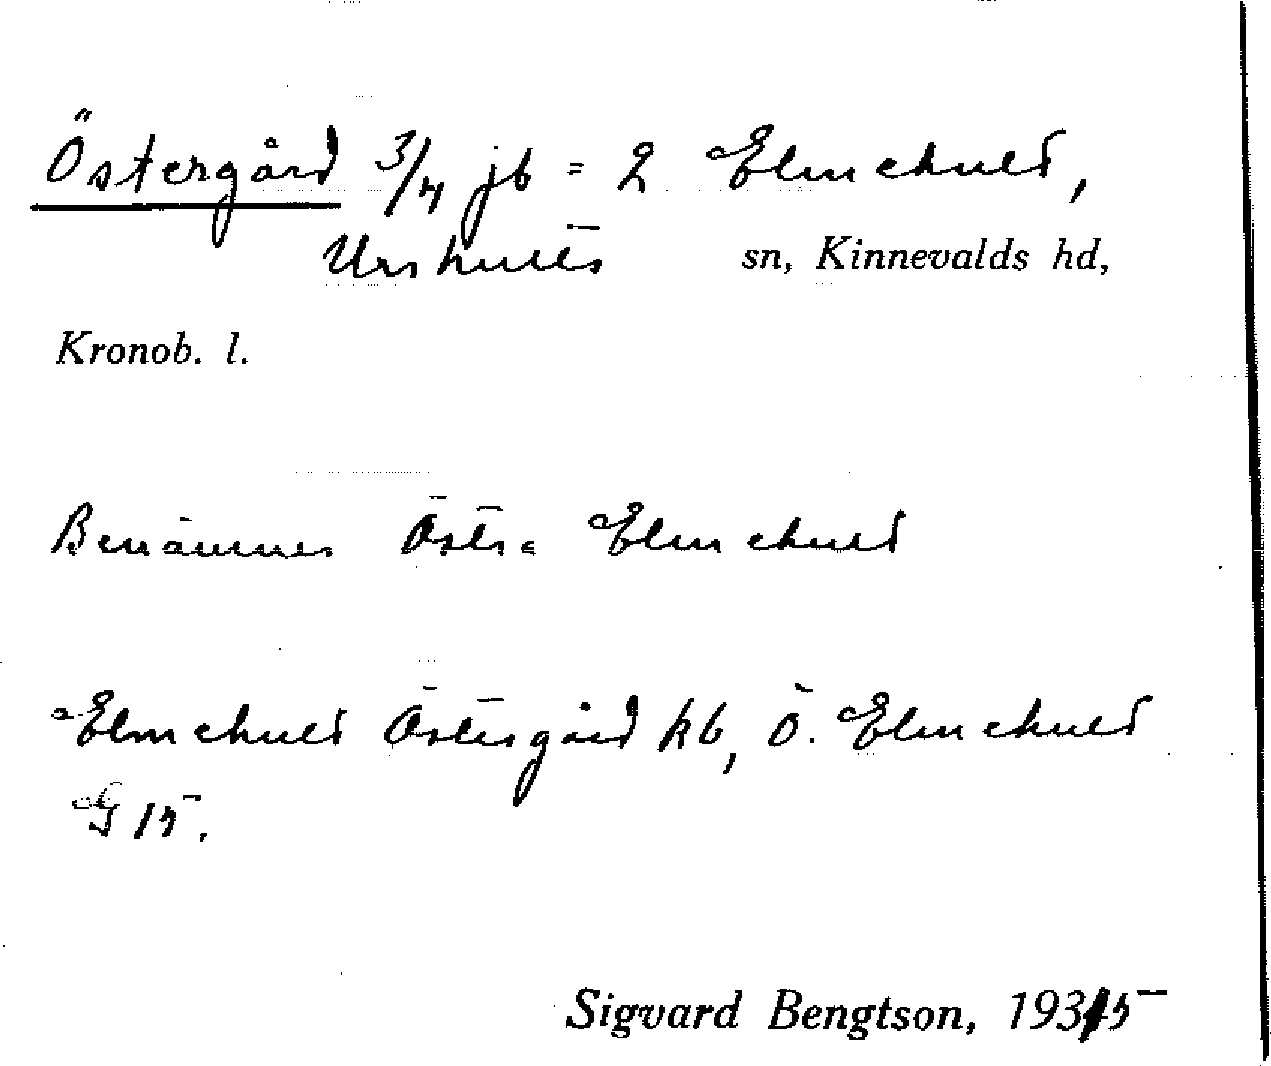 Östergård 3/4 jb = 2 Elmehult,
Urshults sn, Kinnevalds hd,
Kronob. l.
Benämnes Östra Elmehult
Elmehult Östergård kb, Ö. Elmehult
G 15.
Sigvard Bengtson, 1935